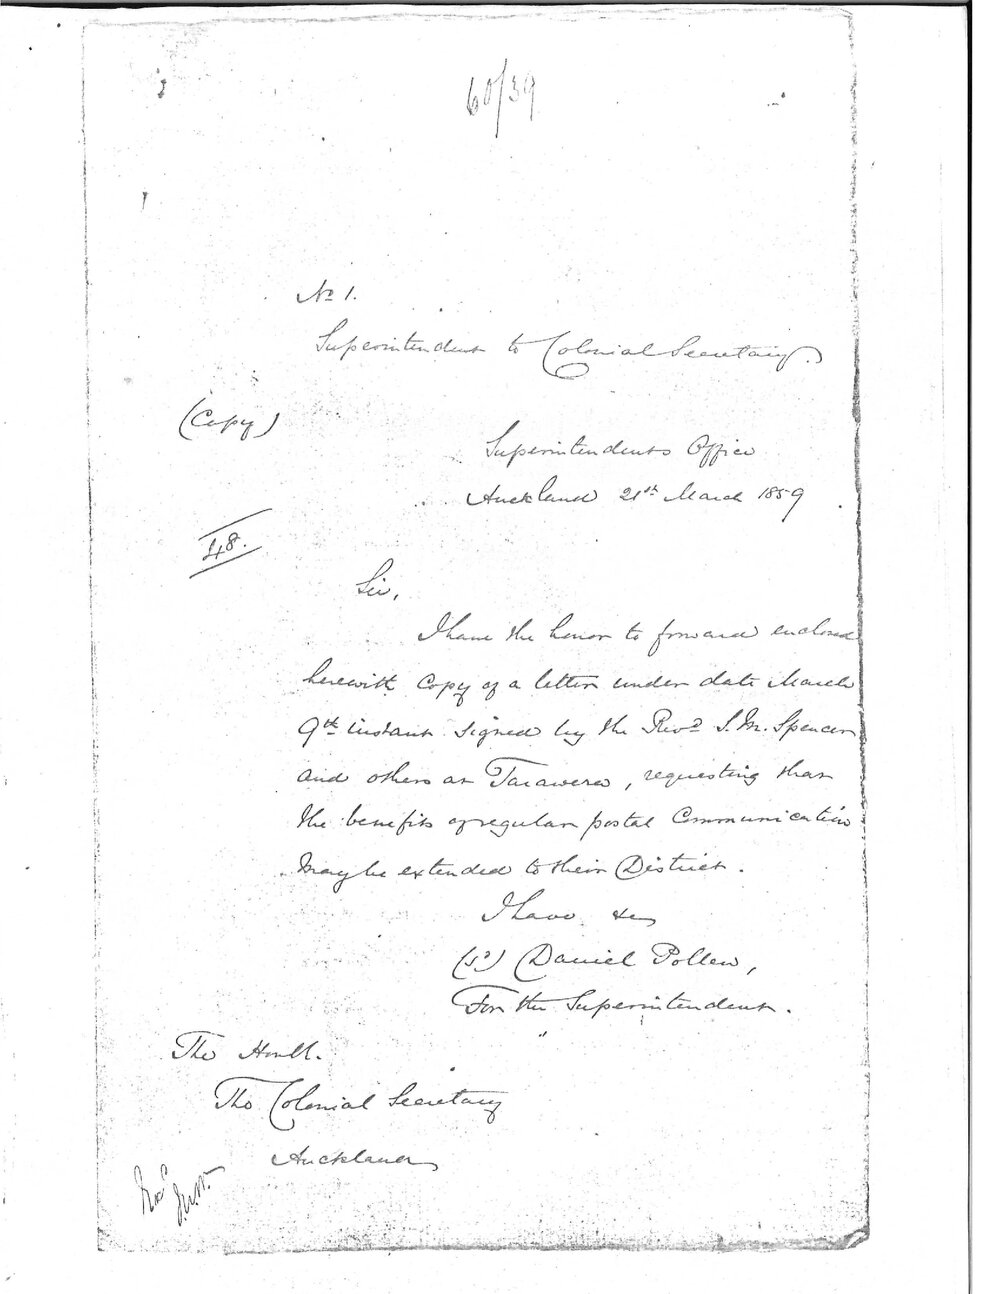 60/39
No 1.
Superintendent to Colonial Secretary.
(Copy)
Superintendents Office
Auckland 21st March 1859
48.
Sir,
I have the honor to forward enclosed
herewith Copy of a letter under date March
9th instant signed by the Revd S. M. Spencer
and others at Tarawera, requesting that
the benefits of regular postal Communication
may be extended to their District.
I have &c
(sd) Daniel Pollen,
For the Superintendent.
The Honbl.
The Colonial Secretary
Auckland